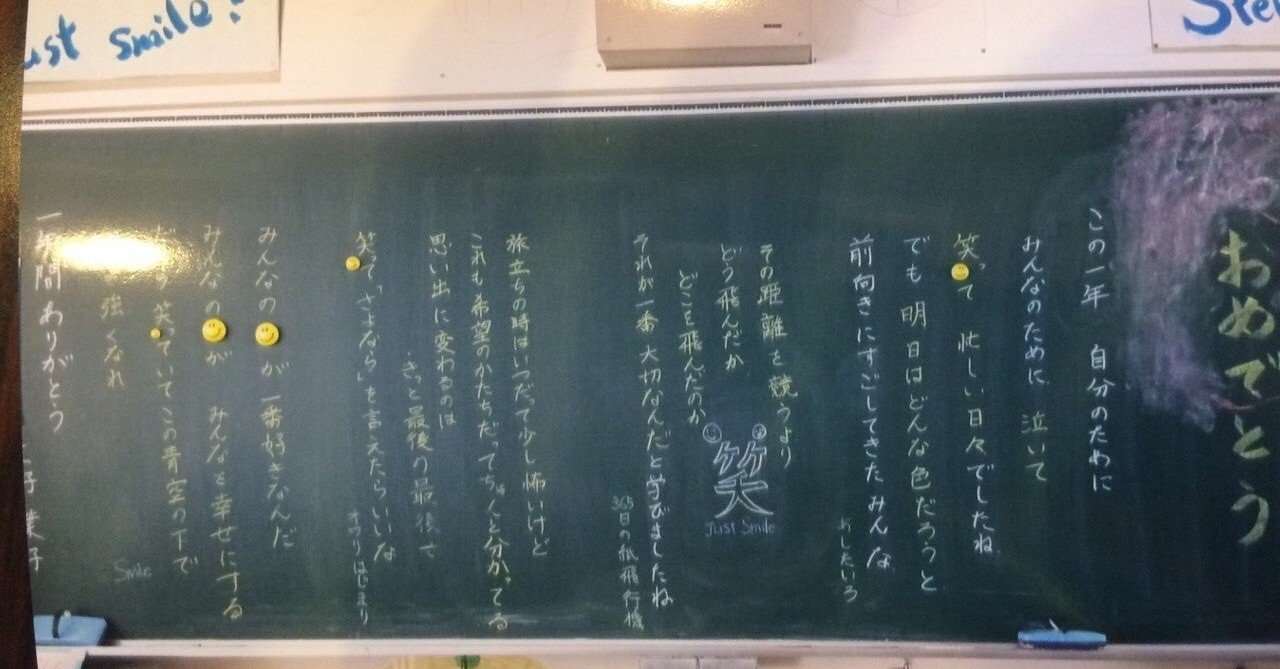 ust smile!
おめでとう
この一年 自分のために
みんなのために 泣いて
笑って 忙しい日々でしたね
でも 明日はどんな色だろうと
前向きにすごしてきたみんな
あしたいろ
その距離を競うより
どう飛んだか
どこを飛んだのか
笑
Just Smile
それが一番 大切なんだと学びましたね
365日の紙飛行機
旅立ちの時はいつだって少し怖いけど
これも希望のかたちだってちゃんと分かってる
思い出に変わるのは
きっと最後の最後で
笑って、「さよなら」を言えたらいいな
みんなの が 一番好きなんだ
みんなの が みんなを幸せにする
笑っていてこの青空の下で
強くなれ
Smile
間 ありがとう